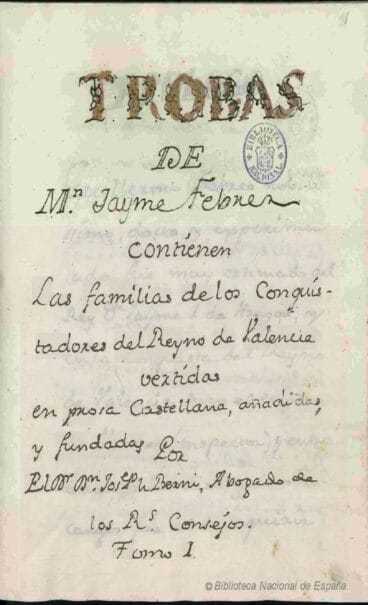 TROBAS
DE
Mⁿ Jayme Febrer
contienen
Las familias de los Conquis-
tadores del Reyno de Valencia
vertidas
en prosa Castellana, añadidas,
y fundadas Por
El Dr. Dn. Berni, Abogado de
los Rs. Consejos.
Tomo I
BIBLIOTECA NACIONAL
© Biblioteca Nacional de España